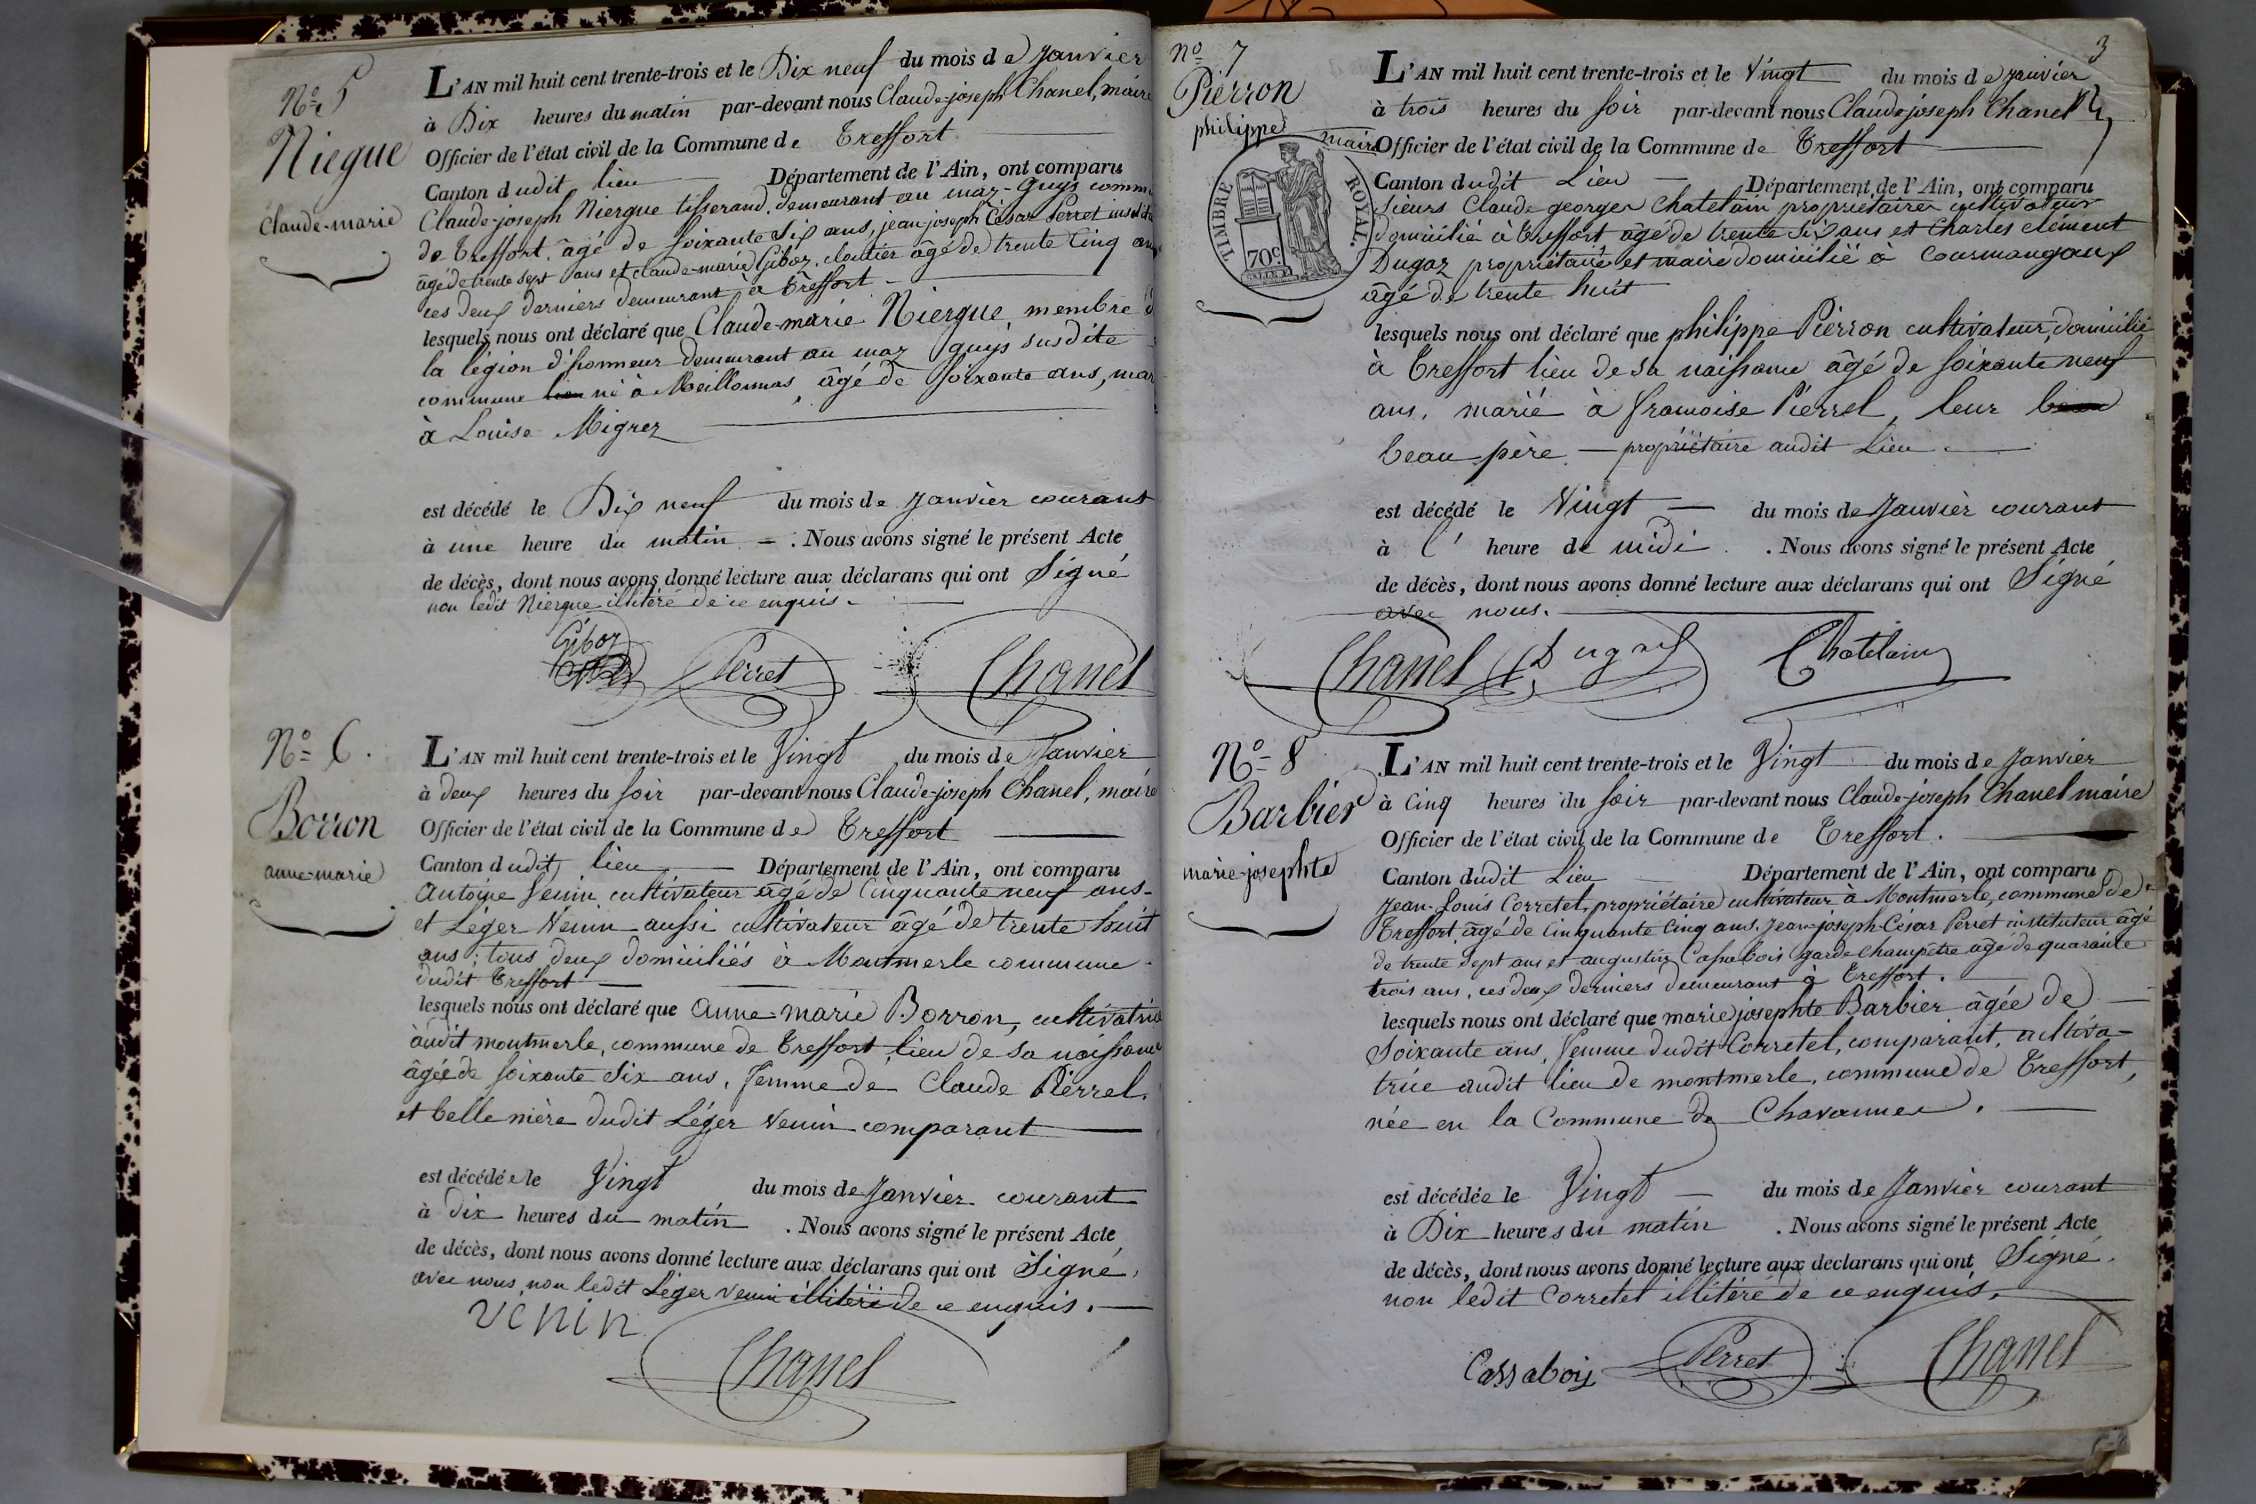 Nº 5
Niegue
Claude-marie
L'AN mil huit cent trente-trois et le Dix neuf du mois de Janvier
à Dix heures du matin par-devant nous Claude-joseph Chanel, maire
Officier de l'état civil de la Commune de Treffort
Canton dudit lieu Département de l'Ain, ont comparu
Claude-joseph Niergue tisserand, demeurant au maz-Guys comm
de Treffort, âgé de soixante six ans, jean joseph César Perret instit
âgé de trente sept ans et claude-marie Giboz, cloutier âgé de trente Cinq ans
ces deux derniers demeurant à Treffort
lesquels nous ont déclaré que Claude-marie Niergue, membre d
la légion d'honneur demeurant au maz guys susdite
commune né à Meillonnas, âgé de soixante ans, mar
à Louise Migrez
est décédé le Dix neuf du mois de Janvier courant
à une heure du matin. Nous avons signé le présent Acte
de décès, dont nous avons donné lecture aux déclarans qui ont Signé
non ledit Niergue illitéré de ce enquis.
Giboz
Perret
Chanel
Nº 6.
Borron
anne-marie
L'AN mil huit cent trente-trois et le Vingt du mois de Janvier
à deux heures du soir par-devant nous Claude-joseph Chanel, maire
Officier de l'état civil de la Commune de Treffort
Canton dudit lieu Département de l'Ain, ont comparu
Antoine Venin cultivateur âgé de Cinquante neuf ans
et Léger Venin aussi cultivateur âgé de trente huit
ans; tous deux domiciliés à Montmerle commune
dudit Treffort
lesquels nous ont déclaré que anne-marie Borron, cultivatrice
audit montmerle, commune de Treffort, lieu de sa naissance
âgée de soixante six ans, femme de Claude Pierrel,
et belle mère dudit Léger Venin comparant
est décédée le Vingt du mois de Janvier courant
à dix heures du matin. Nous avons signé le présent Acte
de décès, dont nous avons donné lecture aux déclarans qui ont Signé,
avec nous, non ledit Léger Venin illitéré de ce enquis.
Venin
Chanel
3
Nº 7
Pierron
philippe
TIMBRE ROYAL.
70c
L'AN mil huit cent trente-trois et le Vingt du mois de janvier
à trois heures du soir par-devant nous Claude joseph Chanel
maire Officier de l'état civil de la Commune de Treffort
Canton dudit Lieu Département de l'Ain, ont comparu
Sieurs Claude george Chatelain propriétaire cultivateur
domicilié à Treffort âgé de trente Six ans et Charles clément
Dugaz propriétaire et maire domicilié à Courmangoux
âgé de trente huit
lesquels nous ont déclaré que philippe Pierron cultivateur, domicilié
à Treffort lieu de sa naissance âgé de soixante neuf
ans, marié à françoise Pierrel, leur beau
beau père — propriétaire audit Lieu.
est décédé le Vingt du mois de Janvier courant
à l'heure de midi. Nous avons signé le présent Acte
de décès, dont nous avons donné lecture aux déclarans qui ont Signé
avec nous.
Chanel
Chatelain
Nº 8
Barbier
marie-josephte
L'AN mil huit cent trente-trois et le Vingt du mois de Janvier
à Cinq heures du soir par-devant nous Claude-joseph Chanel maire
Officier de l'état civil de la Commune de Treffort.
Canton dudit Lieu Département de l'Ain, ont comparu
Jean-Louis Corretel, propriétaire cultivateur à Montmerle, commune de
Treffort, âgé de Cinquante Cinq ans, Jean-joseph-César Perret instituteur âgé
de trente sept ans et augustin Cassabois garde champêtre âgé de quarante
trois ans, ces deux derniers demeurant à Treffort.
lesquels nous ont déclaré que marie josephte Barbier âgée de
Soixante ans, femme dudit Corretel, comparant, cultiva-
trice audit lieu de montmerle, commune de Treffort,
née en la Commune de Chavannes.
est décédée le Vingt du mois de Janvier courant
à Dix heures du matin. Nous avons signé le présent Acte
de décès, dont nous avons donné lecture aux declarans qui ont Signé.
non ledit Corretel illitéré de ce enquis.
Cassabois
Perret
Chanel